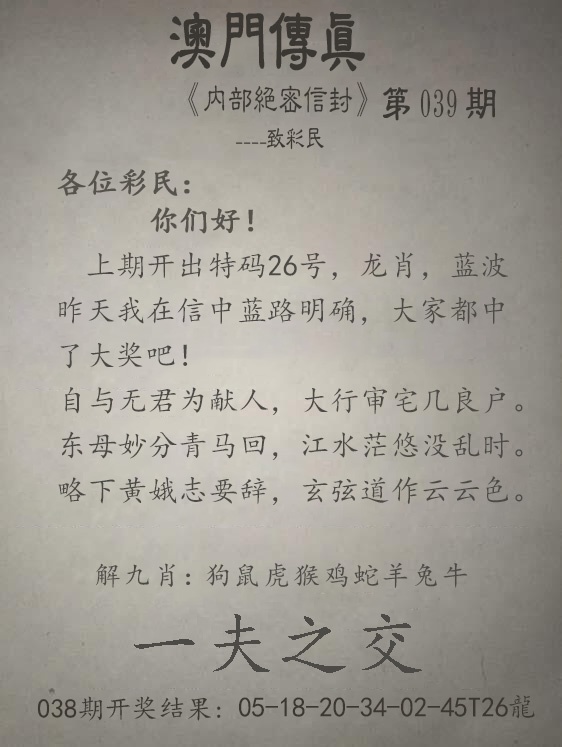 澳門傳真
《内部絕密信封》第039期
----致彩民
各位彩民：
你们好！
上期开出特码26号，龙肖，蓝波
昨天我在信中蓝路明确，大家都中
了大奖吧！
自与无君为献人，大行审宅几良户。
东母妙分青马回，江水茫悠没乱时。
略下黄娥志要辞，玄弦道作云云色。
解九肖：狗鼠虎猴鸡蛇羊兔牛
一夫之交
038期开奖结果：05-18-20-34-02-45T26龍